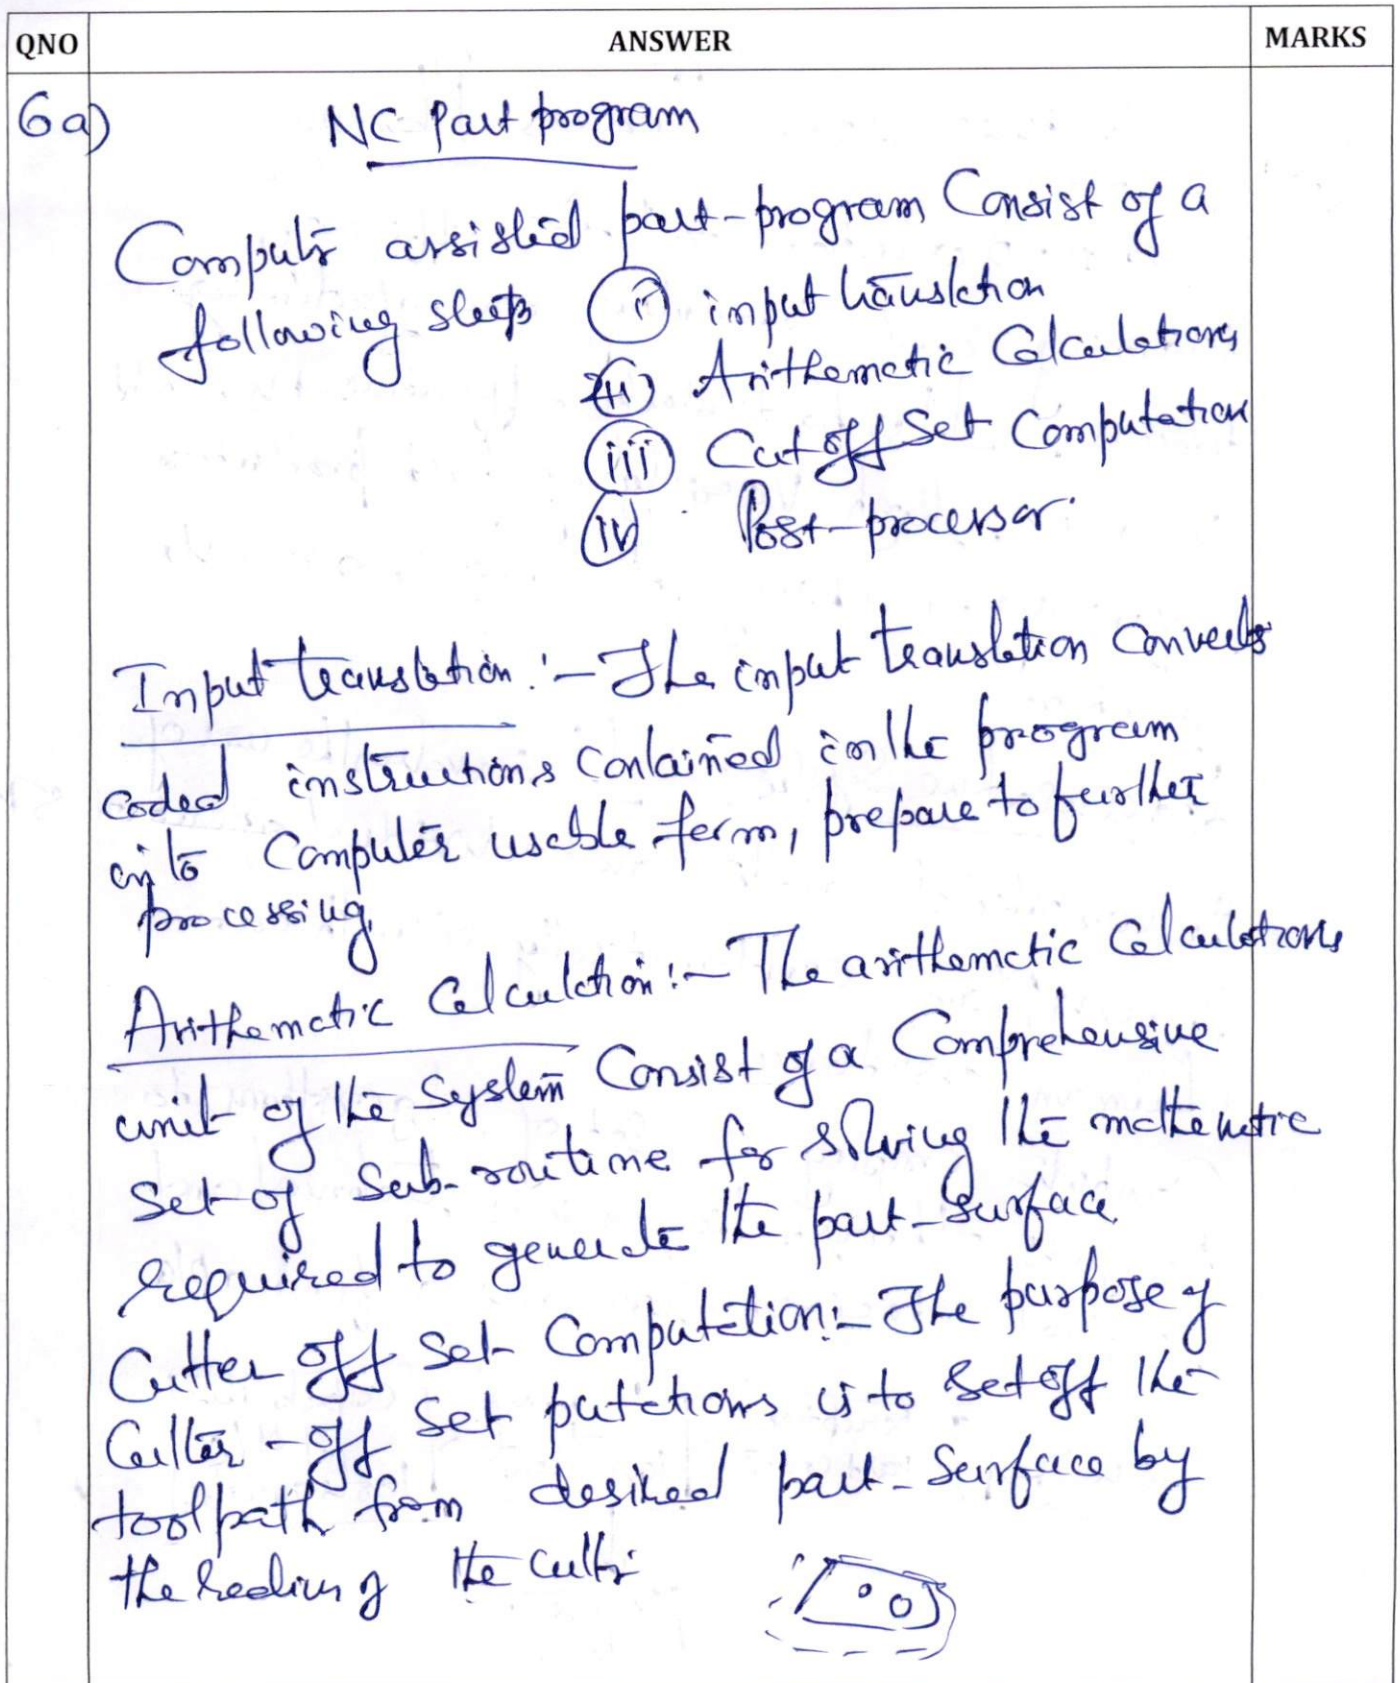 QNO ANSWER MARKS
6a) NC Part program
Computer assisted part-program Consist of a
following steps (i) input translation
(ii) Arithematic Calculations
(iii) Cut off Set Computation
(iv) Post-processor.
Input translation :- The input translation converts
coded instructions contained in the program
into Computer usable form, prepare to further
processing.
Arithematic Calculation :- The arithematic Calculations
unit of the System Consist of a Comprehensive
set of sub-routine for solving the mathematic
required to generate the part-surface.
Cutter off set Computation :- The purpose of
Cutter-off set putations is to set off the
toolpath from desired part-surface by
the radius of the cutter